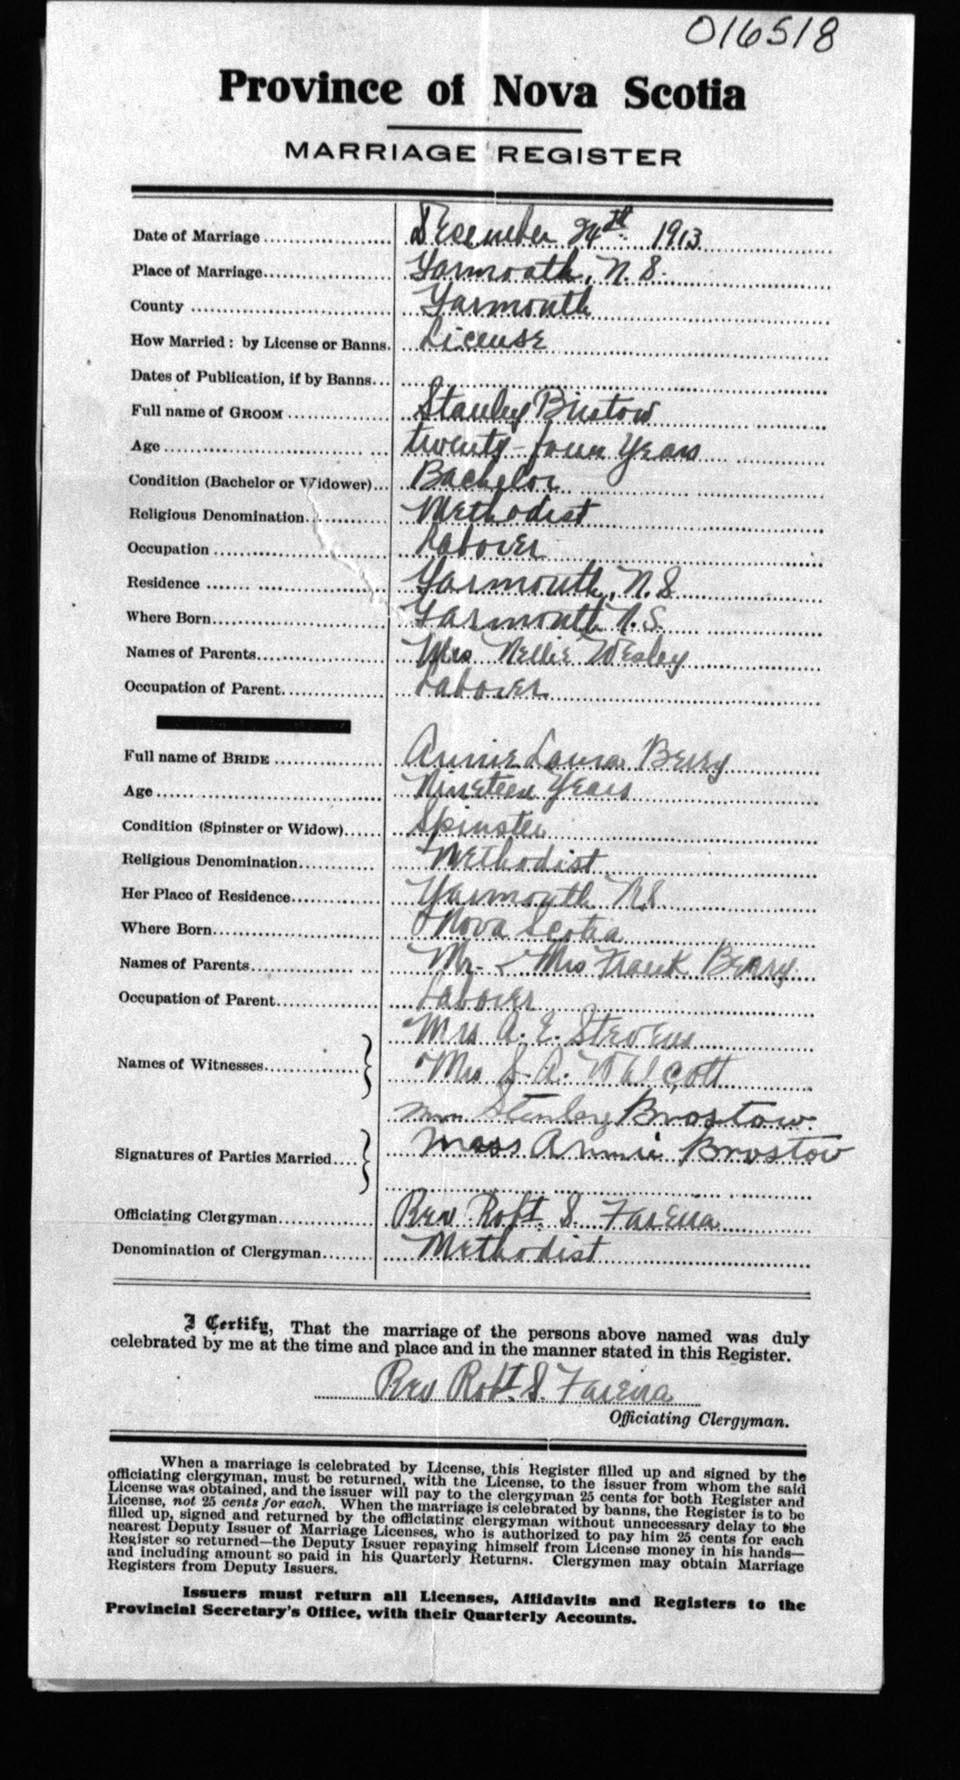 016518
Province of Nova Scotia
MARRIAGE REGISTER
Date of Marriage December 24th 1913
Place of Marriage Yarmouth, N.S.
County Yarmouth
How Married: by License or Banns. License
Dates of Publication, if by Banns
Full name of GROOM Stanley Bristow
Age twenty-four Years
Condition (Bachelor or Widower) Bachelor
Religious Denomination Methodist
Occupation Laborer
Residence Yarmouth, N.S
Where Born Yarmouth N.S.
Names of Parents Mrs Nellie Wesley
Occupation of Parent Laborer
Full name of BRIDE Annie Laura Berry
Age Nineteen Years
Condition (Spinster or Widow) Spinster
Religious Denomination Methodist
Her Place of Residence Yarmouth N.S.
Where Born Nova Scotia
Names of Parents Mr. & Mrs Frank Berry
Occupation of Parent Laborer
Mrs A. E. Stevens
Names of Witnesses Mrs S. A. Walcott
Stenley Brostow.
Signatures of Parties Married Mass Annie Brostow
Officiating Clergyman Rev Robt. S.
Denomination of Clergyman Methodist
I Certify, That the marriage of the persons above named was duly
celebrated by me at the time and place and in the manner stated in this Register.
Rev Robt. S.
Officiating Clergyman.
When a marriage is celebrated by License, this Register filled up and signed by the
officiating clergyman, must be returned, with the License, to the issuer from whom the said
License was obtained, and the issuer will pay to the clergyman 25 cents for both Register and
License, not 25 cents for each. When the marriage is celebrated by banns, the Register is to be
filled up, signed and returned by the officiating clergyman without unnecessary delay to the
nearest Deputy Issuer of Marriage Licenses, who is authorized to pay him 25 cents for each
Register so returned—the Deputy Issuer repaying himself from License money in his hands—
and including amount so paid in his Quarterly Returns. Clergymen may obtain Marriage
Registers from Deputy Issuers.
Issuers must return all Licenses, Affidavits and Registers to the
Provincial Secretary's Office, with their Quarterly Accounts.